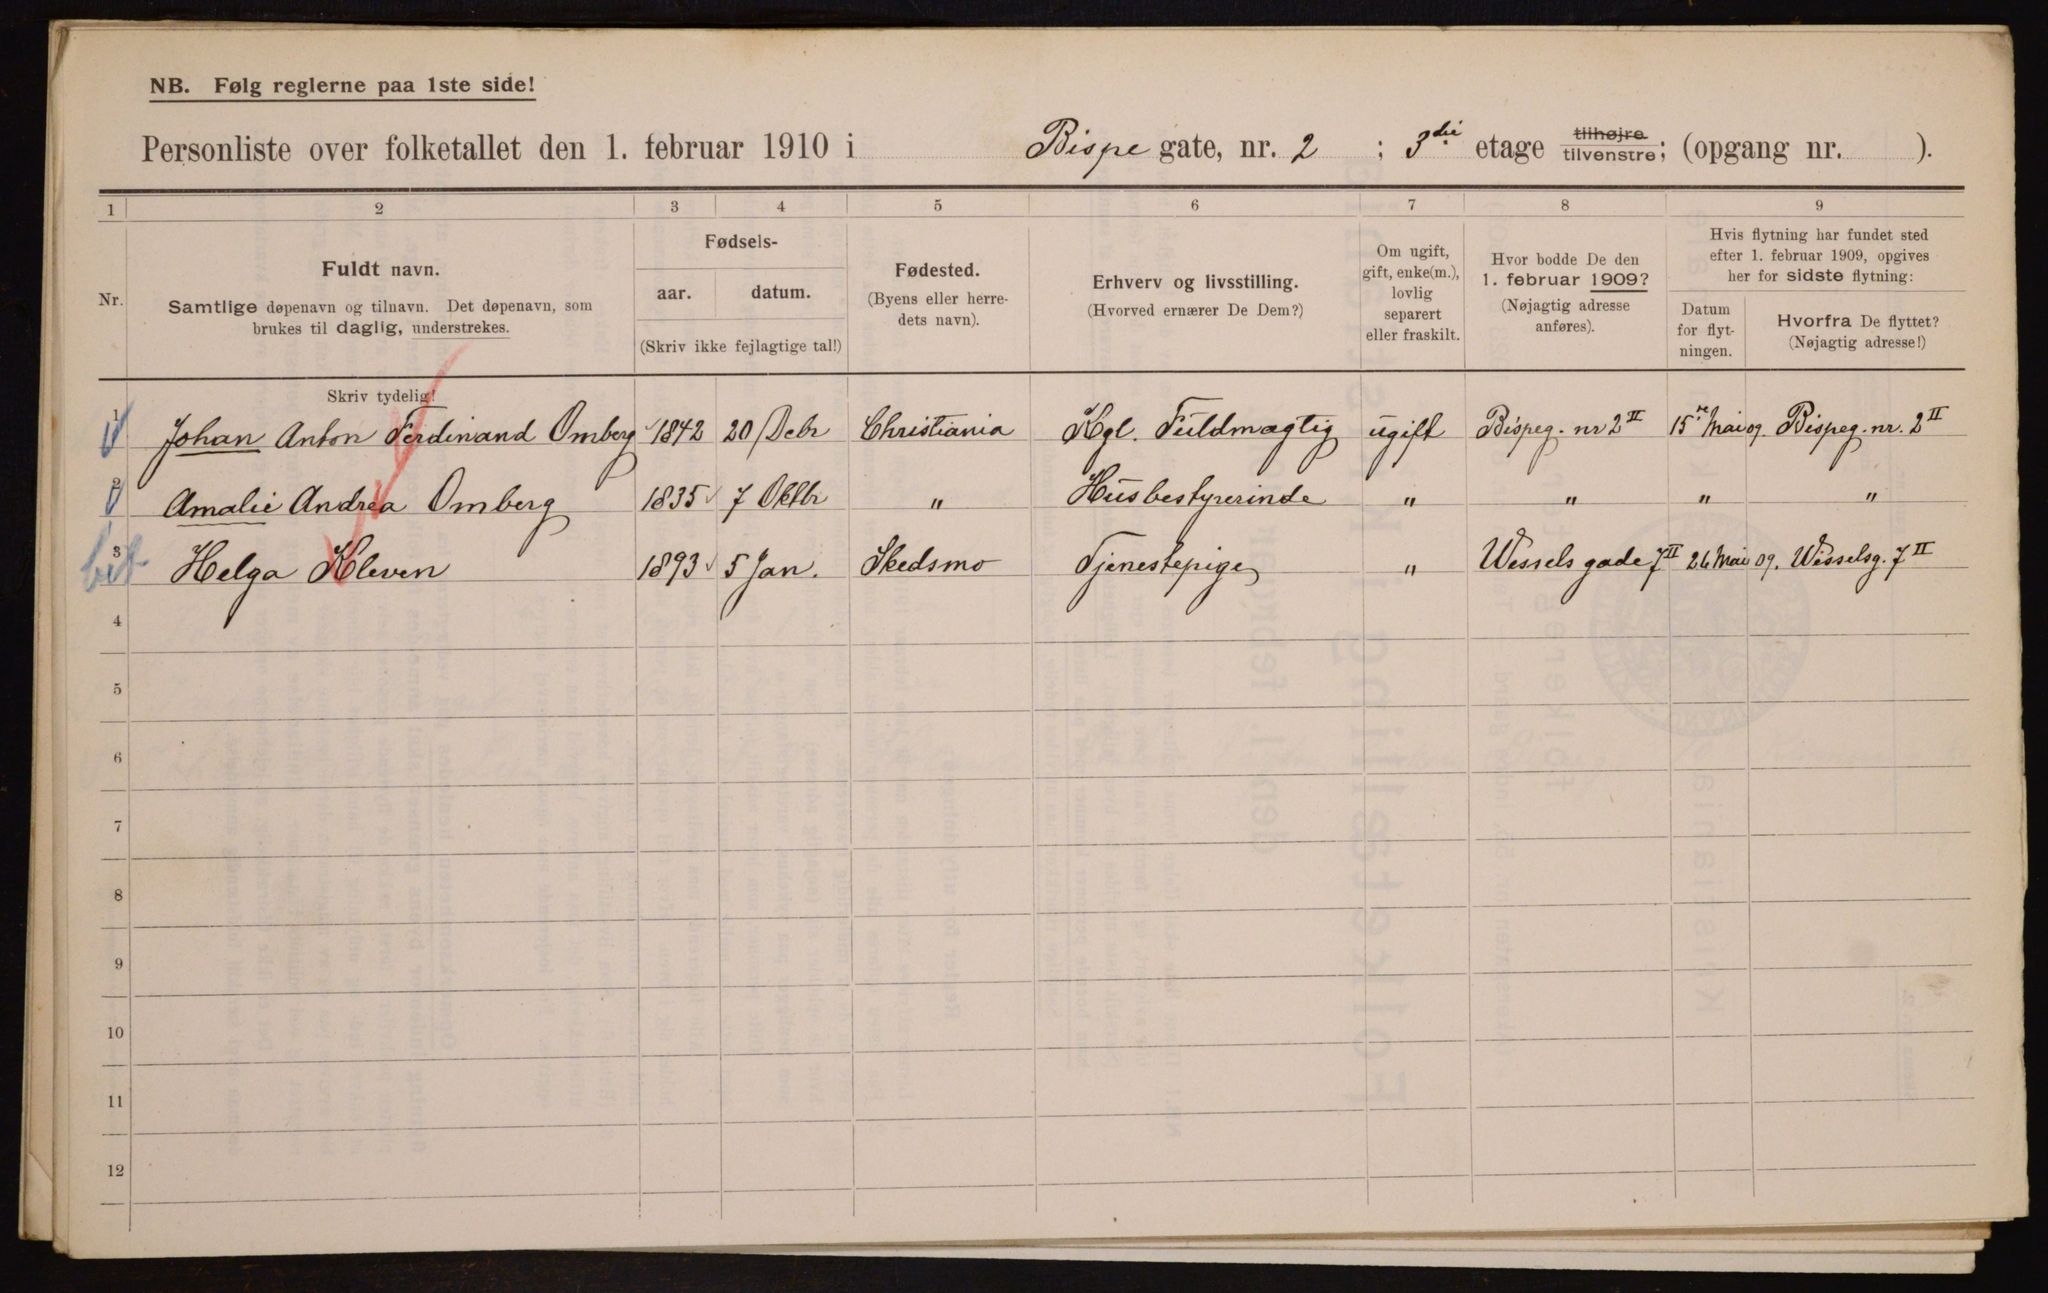 NB. Følg reglerne paa 1ste side!
Personliste over folketallet den 1. februar 1910 i Bispe gate, nr. 2 ; 3die etage tilhøjre tilvenstre; (opgang nr. ).
1 2 3 4 5 6 7 8 9
Nr.
Fuldt navn.
Samtlige døpenavn og tilnavn. Det døpenavn, som
brukes til daglig, understrekes.
Fødsels-
aar. datum.
(Skriv ikke fejlagtige tal!)
Fødested.
(Byens eller herre-
dets navn).
Erhverv og livsstilling.
(Hvorved ernærer De Dem?)
Om ugift,
gift, enke(m.),
lovlig
separert
eller fraskilt.
Hvor bodde De den
1. februar 1909?
(Nøjagtig adresse
anføres).
Hvis flytning har fundet sted
efter 1. februar 1909, opgives
her for sidste flytning:
Datum
for flyt-
ningen.
Hvorfra De flyttet?
(Nøjagtig adresse!)
Skriv tydelig!
1 Johan Anton Ferdinand Omberg 1842 20 Debr Christiania Kgl. Fuldmægtig ugift Bispeg. nr 2 II 15ne Mai 09. Bispeg. nr. 2 II
2 Amalie Andrea Omberg 1835 7 Oktbr " Husbestyrerinde " " " "
3 Helga Kleven 1893 5 Jan. Skedsmo Tjenestepige " Wessels gade 7 II 26 Mai 09. Wesselsg. 7 II
4
5
6
7
8
9
10
11
12